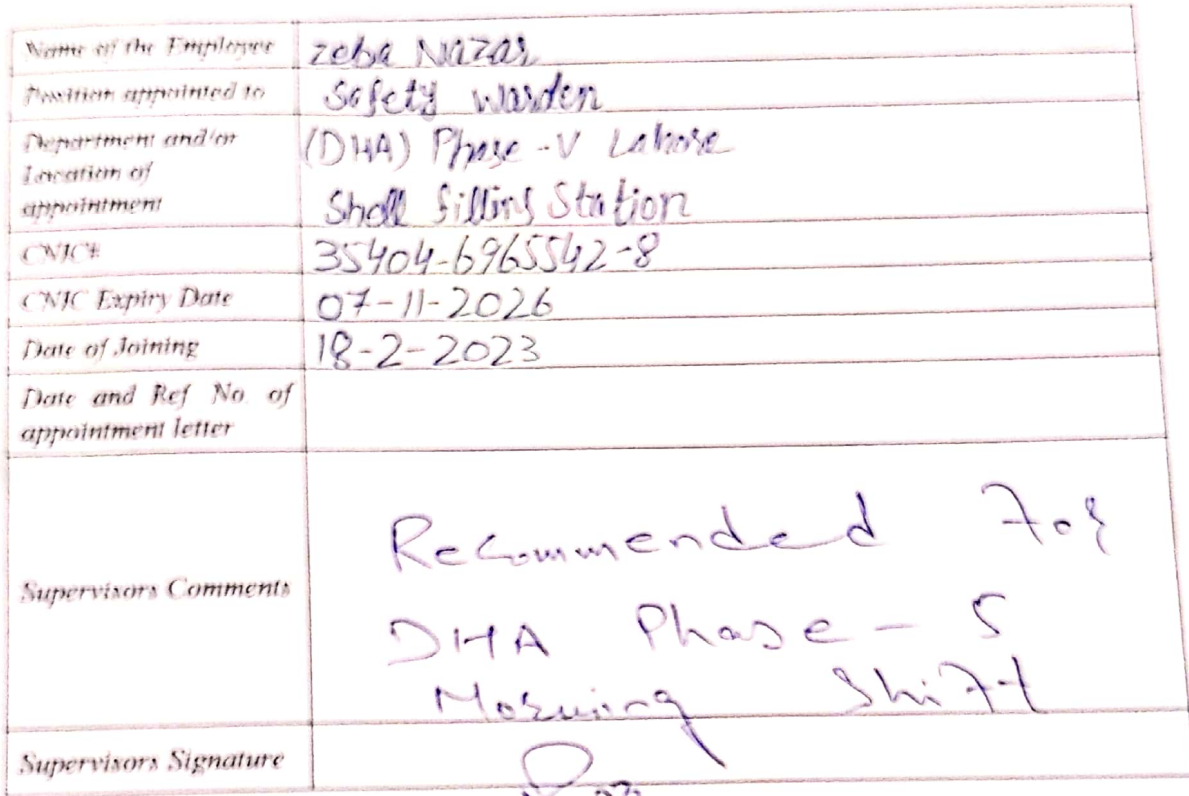 Name of the Employee zeba Nazar
Position appointed to Safety warden
Department and/or (DHA) Phase-V Lahore
Location of
appointment Shell filling Station
CNIC# 35404-6965542-8
CNIC Expiry Date 07-11-2026
Date of Joining 18-2-2023
Date and Ref No. of
appointment letter
Recommended For
Supervisors Comments
DHA Phase-5
Morning Shift
Supervisors Signature